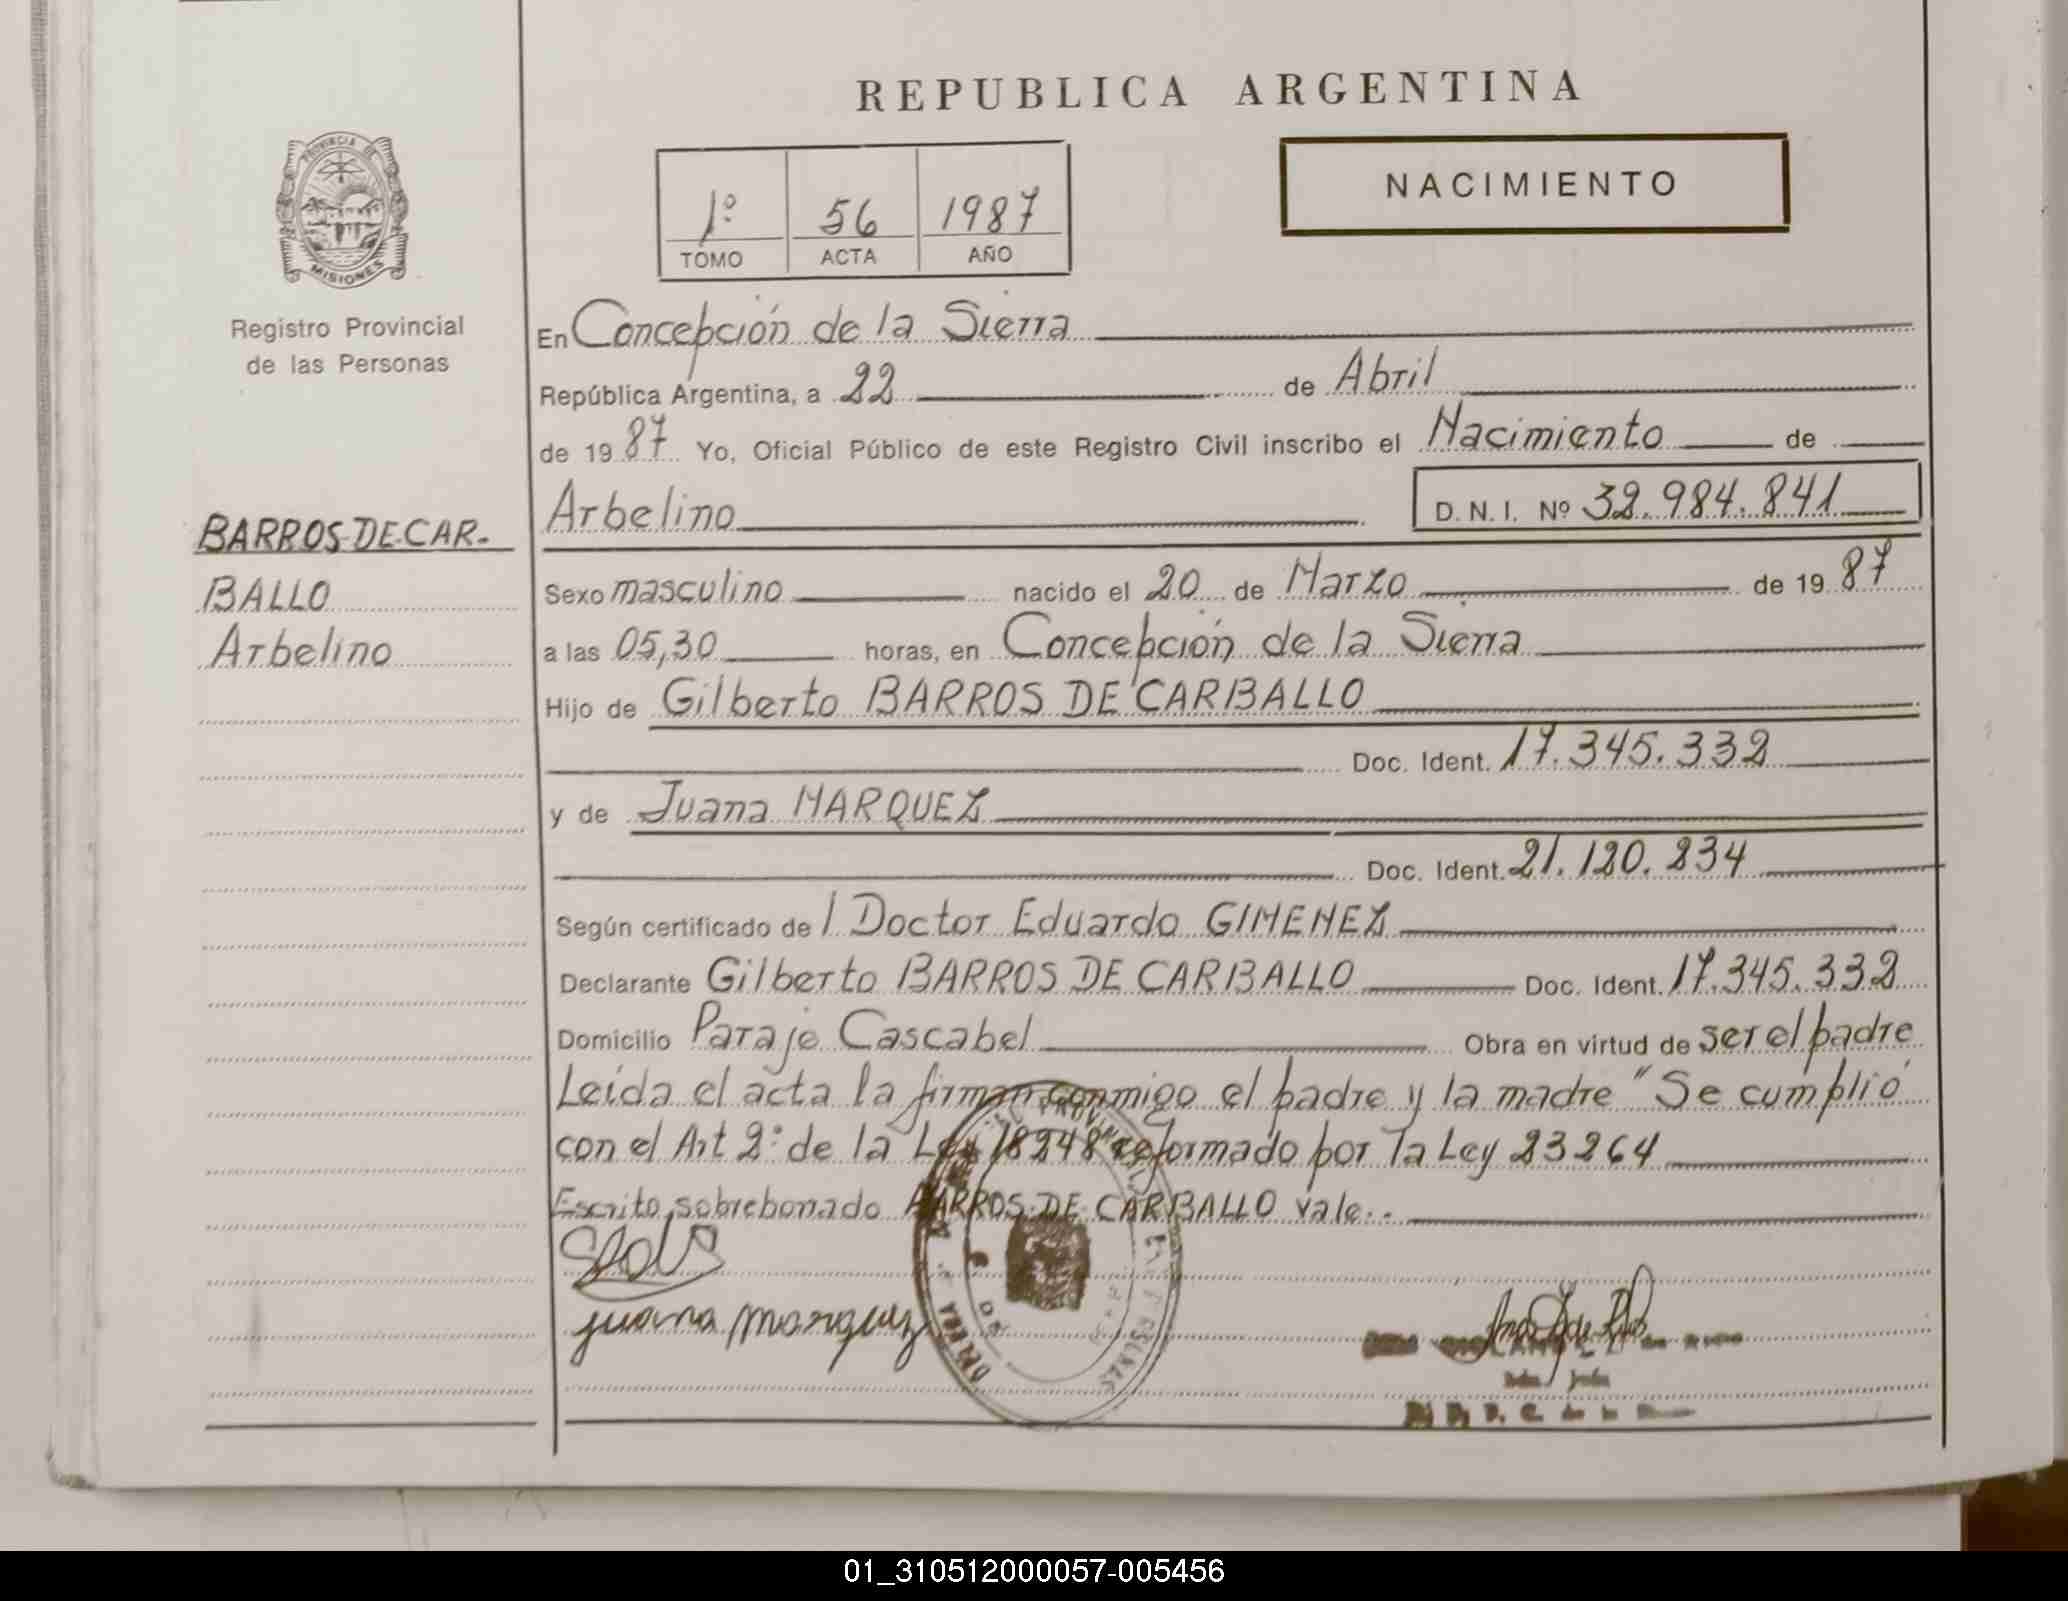 REPUBLICA ARGENTINA
NACIMIENTO
1º 56 1987
TOMO ACTA AÑO
PROVINCIA DE
MISIONES
Registro Provincial
de las Personas
BARROS DE CAR-
BALLO
Arbelino
En Concepción de la Sierra
República Argentina, a 22 de Abril
de 1987 Yo, Oficial Público de este Registro Civil inscribo el Nacimiento de
Arbelino D. N. I. Nº 32.984.841
Sexo masculino nacido el 20 de Marzo de 1987
a las 05,30 horas, en Concepción de la Sierra
Hijo de Gilberto BARROS DE CARBALLO
Doc. Ident. 17.345.332
y de Juana MARQUEZ
Doc. Ident. 21.120.234
Según certificado de l Doctor Eduardo GIMENEZ
Declarante Gilberto BARROS DE CARBALLO Doc. Ident. 17.345.332
Domicilio Paraje Cascabel Obra en virtud de ser el padre
Leída el acta la firman conmigo el padre y la madre "Se cumplió
con el Art 2º de la Ley 18248" reformado por la Ley 23264
Escrito sobreborrado BARROS DE CARBALLO vale..
juana marquez
01_310512000057-005456